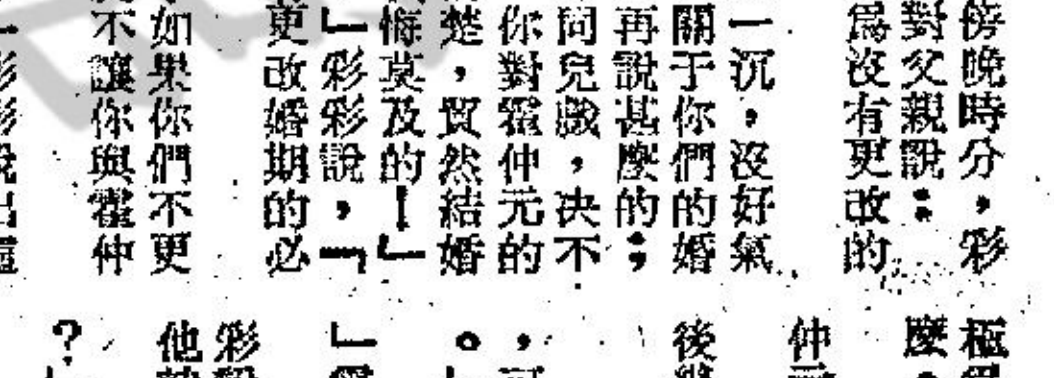 傍晚時分,彩
對父親說:
爲沒有更改的
一沉,沒好氣
關于你們的婚
再說甚麼的;
同兒戲,决不
你對霍仲元的
楚,貿然結婚
悔莫及的!」
」彩彩說,「
更改婚期的必
如果你們不更
不讓你與霍仲
極
麼
仲
後
彩
他
?